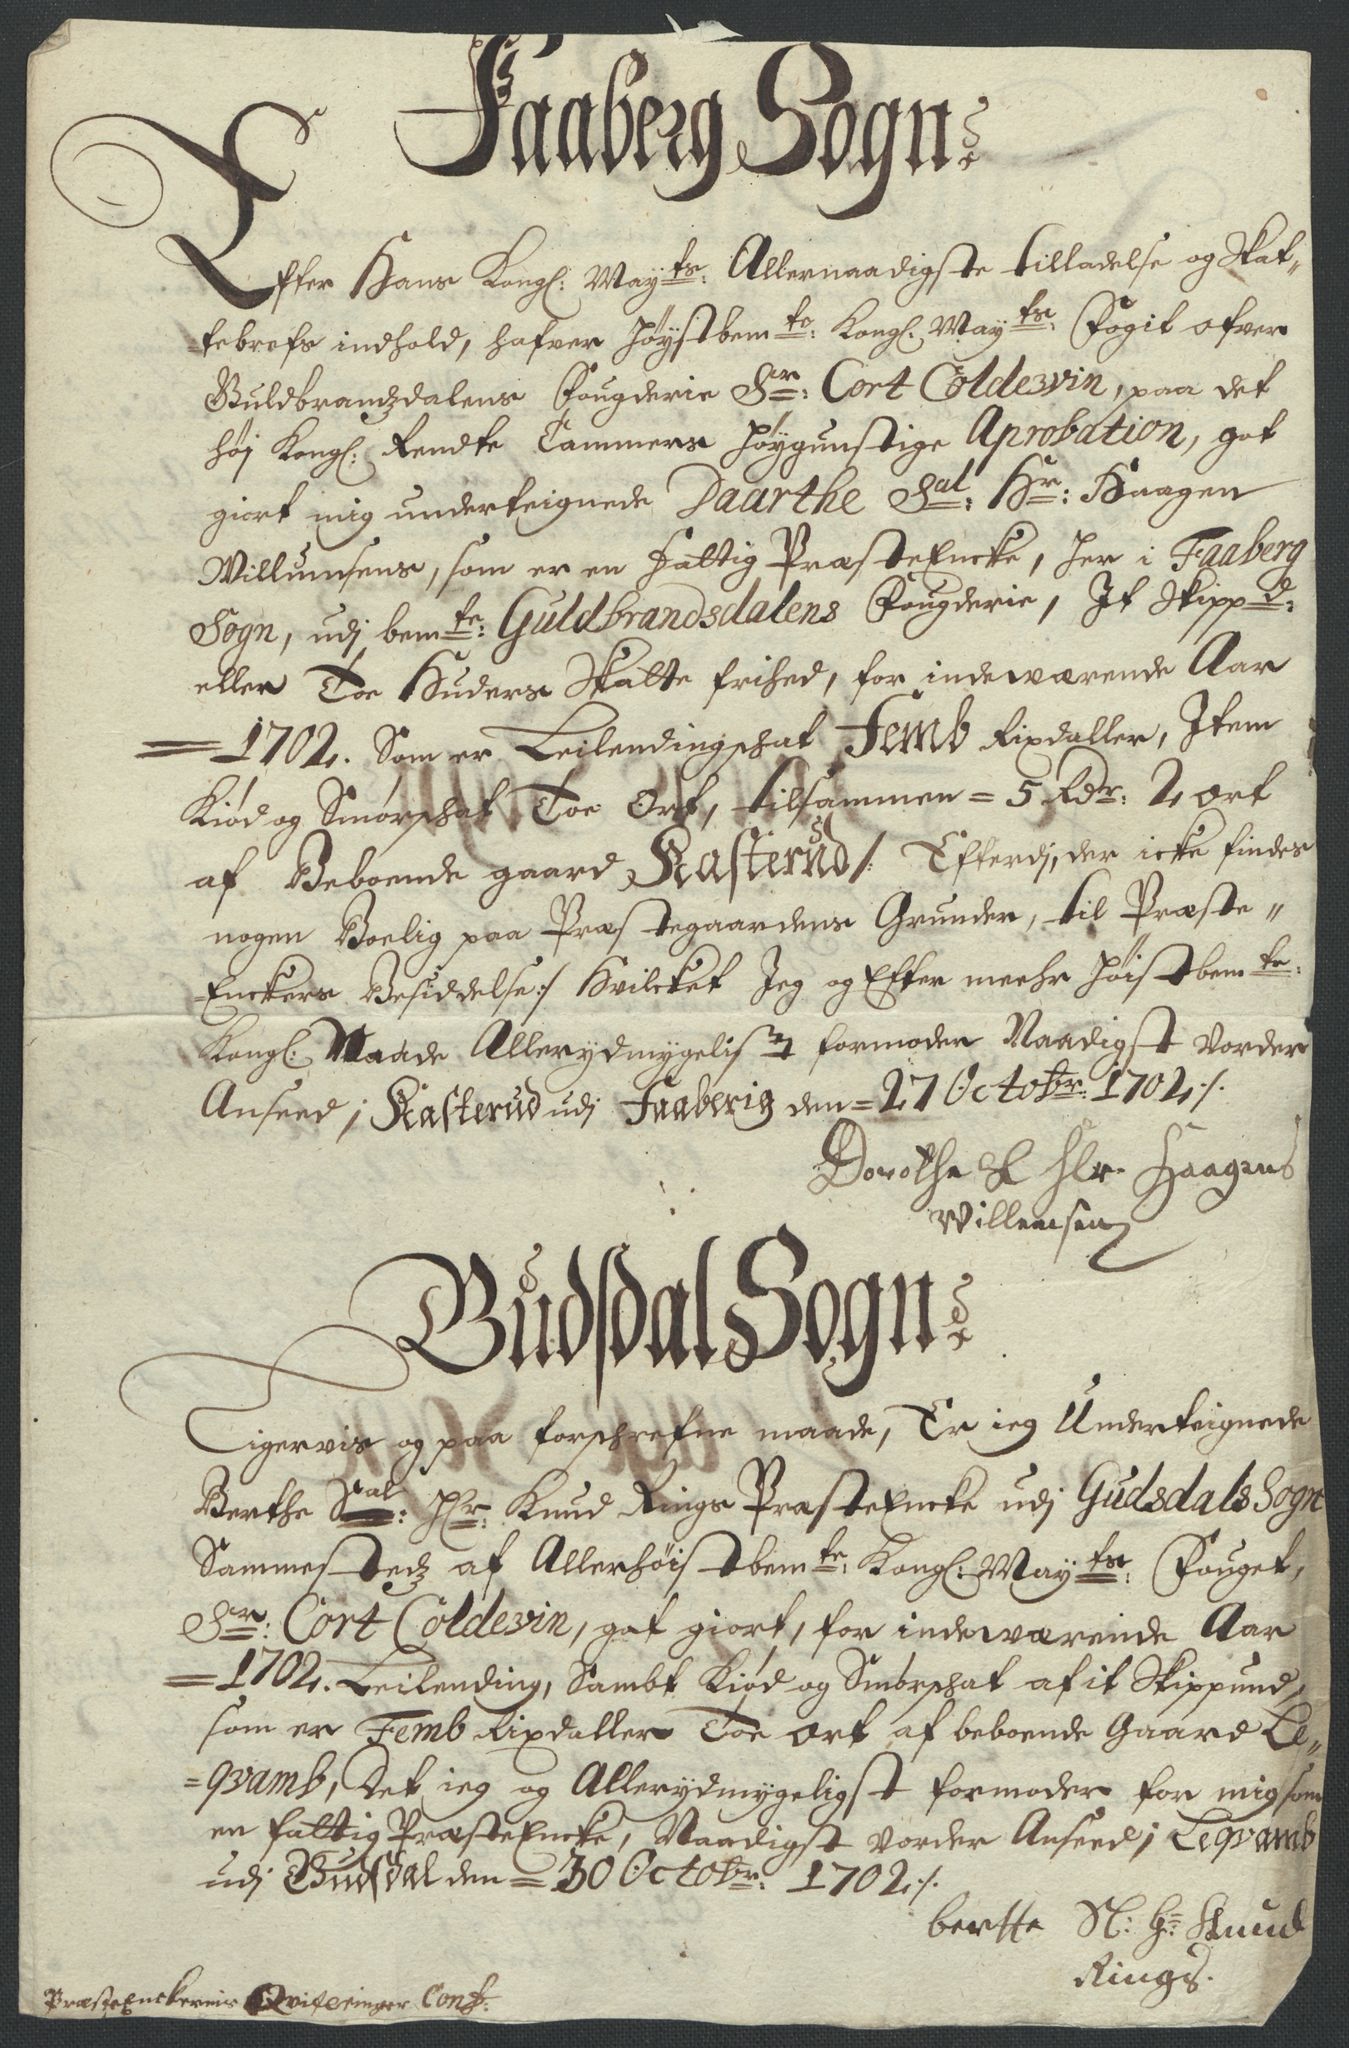 Faaberg Sogn:
Efter Hans Kongl: Mayts: Allernaadigste tilladelse og Skat„
tebrefs indhold, hafver höystbemte: Kongl: Mayts: Fogit ofver
Guldbrandzdalens Fougderie Sr: Cort Coldevin, paa det
höj Kongl: Rendte Cammers höygunstige Aprobation, got
giort mig underteignede Daarthe Sal: Hr: Haagen
Willumsens, som er en fattig PræsteEncke, her i Faaberg
Sogn, udj bemte: Guldbrandsdalens Fougderie, It Skippd:
eller Toe Huders Skatte frihed, for indeværende Aar
= 1702. Som er Leilendingschat Femb Rixdaller, Item
Kiød og Smørschat Toe Ort, tilsammen = 5 Rdr: 2 ort
af Beboende gaard Kasterud /: Efterdj, der icke findes
nogen Boelig paa Præstegaardens Grunder, til Præste„
Enckers Besiddelse :/ Hvilcket Jeg og Efter meehr höistbemte:
Kongl: Naade Allerydmygeligst formoder Naadigst vorder
Anseed; Kasterud udj Faaberig den = 27 Octobr: 1702 ./.
Dorothe S Hr. Haagens
Willemsen
Gudsdal Sogn:
Ligervis og paa forschrefne maade, Er ieg Underteignede
Berthe Sal: Hr: Knud Rings PræsteEncke udj Gudsdals Sogn
Sammestedz af Allerhöistbemte: Kongl: Mayts: Fouget,
Sr: Cort Coldevin, got giort, for indeværende Aar
= 1702. Leilending, Sambt Kiød og Smørschat af it Skippund,
som er Femb Rixdaller Toe ort af beboende Gaard Le„
=qvamb, Det ieg og Allerydmygeligst formoder for mig som
en fattig PræsteEncke, Naadigst vorder Anseed; Leqvamb
udj Gudsdal den = 30 Octobr: 1702 ./.
berthe Sl: Hr: Knud
Rings.
PræsteEnckernis Qviteringer